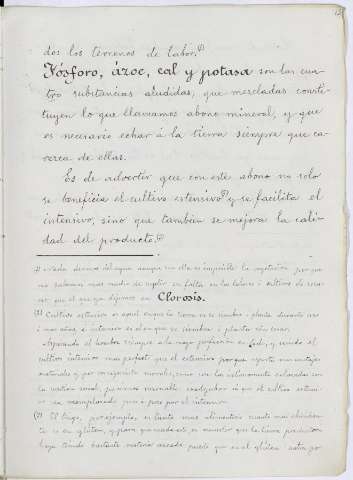 dos los terrenos de labor.(1)
Fósforo, ázoe, cal y potasa son las cua-
tro substancias aludidas, que mezcladas consti-
tuyen lo que llamamos abono mineral, y que
es necesario echar á la tierra siempre que ca-
rezca de ellas.
Es de advertir que con este abono no solo
se beneficia el cultivo extensivo(2) y se facilita el
intensivo, sino que tambien se mejora la cali-
dad del producto.(3)
1) Nada decimos del agua aunque sin ella es imposible la vegetación por que
no sabemos mas medio de suplir su falta en las labores i cultivos de seca-
no que el que ya dijimos en Clorosis.
(2) Cultivo extensivo es aquel en que la tierra se siembra i planta durante uno
i mas años, é intensivo es el en que se siembra i planta sin cesar.
Aspirando el hombre siempre a la mayor perfección en todo, y siendo el
cultivo intensivo mas perfecto que el extensivo porque reporta mas ventajas
materiales y por consiguiente morales, como son las intimamente enlazadas con
la cuestion social, parécenos razonable coadyubar á que el cultivo exten-
sivo sea reemplazado poco á poco por el intensivo.
(3) El trigo, por ejemplo, es tanto mas alimenticio cuanto mas abundan-
te es en gluten, y para que esto sea, es menester que la tierra productora
haya tenido bastante materia azoada, puesto que en el gluten entra por